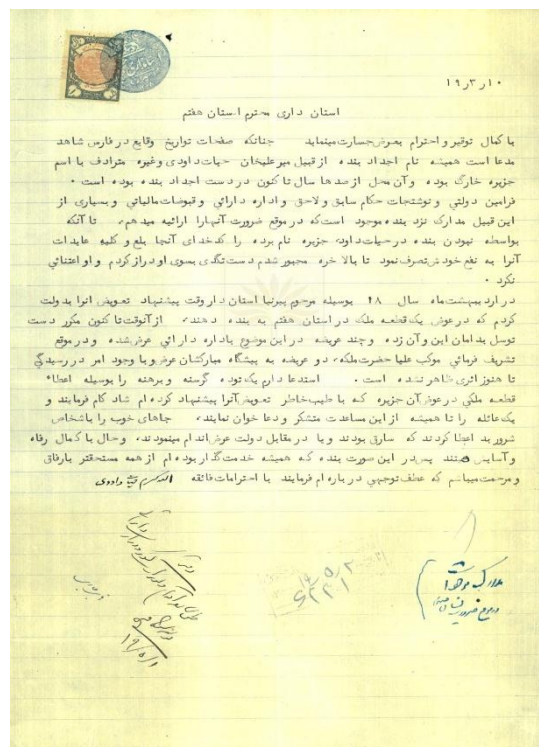 ۱۰ر۳ر۱۹
استان داری محترم استان هفتم
با کمال توقیر و احترام بعرض جسارت مینماید چنانکه صفحات تواریخ وقایع در فارس شاهد
مدعا است همیشه نام اجداد بنده از قبیل میرعلیخان حیات داودی وغیره مترادف با اسم
جزیره خارگ بوده و آن محل از صدها سال تا کنون در دست اجداد بنده بوده است ۰
فرامین دولتی و نوشتجات حکام سابق ولاحق و اداره دارائی و قبوضات مالیاتی و بسیاری از
این قبیل مدارک نزد بنده موجود است که در موقع ضرورت آنها را ارائیه میدهم ۰ تا آنکه
بواسطه نبودن بنده در حیات داود جزیره نام برده را کدخدای آنجا بلع و کلیه عایدات
آنرا به نفع خودش تصرف نمود تا بالا خره مجبور شدم دست تگدی بسوی او دراز کردم و او اعتنائی
نکرد ۰
در اردیبهشت ماه سال ۱۸ بوسیله مرحوم پیرنیا استان دار وقت پیشنهاد تعویض آنرا بدولت
کردم که در عوض یک قطعه ملک در استان هفتم به بنده دهند ۰ از آنوقت تا کنون مکرر دست
توسل بدامان این و آن زده و چند عریضه در این موضوع باداره دارائی عرض شده و در موقع
تشریف فرمائی موکب علیا حضرت ملکه دو عریضه به پیشگاه مبارکشان عرض و با وجود امر در رسیدگی
تا هنوز اثری ظاهر نشده است ۰ استدعا دارم یک توده گرسنه و برهنه را بوسیله اعطاء
قطعه ملکی در عوض آن جزیره که با طیب خاطر تعویض آنرا پیشنهاد کرده ام شاد کام فرمایند و
یک عائله را تا همیشه از این مساعدت متشکر و دعا خوان نمایند ۰ جاهای خوب را باشخاص
شرور بد اعطا کردند که سارق بودند و یا در مقابل دولت عرض اندام مینمودند، و حال با کمال رفاه
و آسایش هستند پس در این صورت بنده که همیشه خدمت گذار بوده ام از همه مستحقتر بارفاق
و مرحمت میباشم که عطف توجهی در باره ام فرمایند با احترامات فائقه